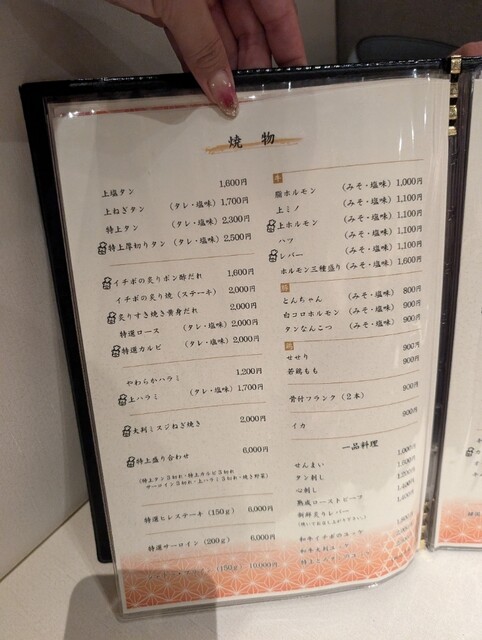 焼物
上塩タン 1,600円
上ねぎタン (タレ・塩味) 1,700円
特上タン (タレ・塩味) 2,300円
特上厚切りタン (タレ・塩味) 2,500円
イチボの炙りポン酢だれ 1,600円
イチボの炙り焼(ステーキ) 2,000円
炙りすき焼き黄身だれ 2,000円
特選ロース (タレ・塩味) 2,000円
特選カルビ (タレ・塩味) 2,000円
やわらかハラミ 1,200円
上ハラミ (タレ・塩味) 1,700円
大判ミスジねぎ焼き 2,000円
特上盛り合わせ 6,000円
(特上タン3切れ・特上カルビ3切れ
サーロイン3切れ・上ハラミ3切れ・焼き野菜)
特選ヒレステーキ (150g) 6,000円
特選サーロイン (200g) 6,000円
(150g) 10,000円
牛
脂ホルモン (みそ・塩味) 1,000円
上ミノ (みそ・塩味) 1,100円
上ホルモン (みそ・塩味) 1,100円
ハツ (みそ・塩味) 1,100円
レバー (みそ・塩味) 1,100円
ホルモン三種盛り (みそ・塩味) 1,600円
豚
とんちゃん (みそ・塩味) 800円
白コロホルモン (みそ・塩味) 900円
タンなんこつ (みそ・塩味) 900円
せせり 900円
若鶏もも 900円
骨付フランク(2本) 900円
イカ 900円
一品料理
せんまい 1,000円
タン刺し
心刺し
熟成ローストビーフ
新鮮炙りレバー
和牛イチボのユッケ